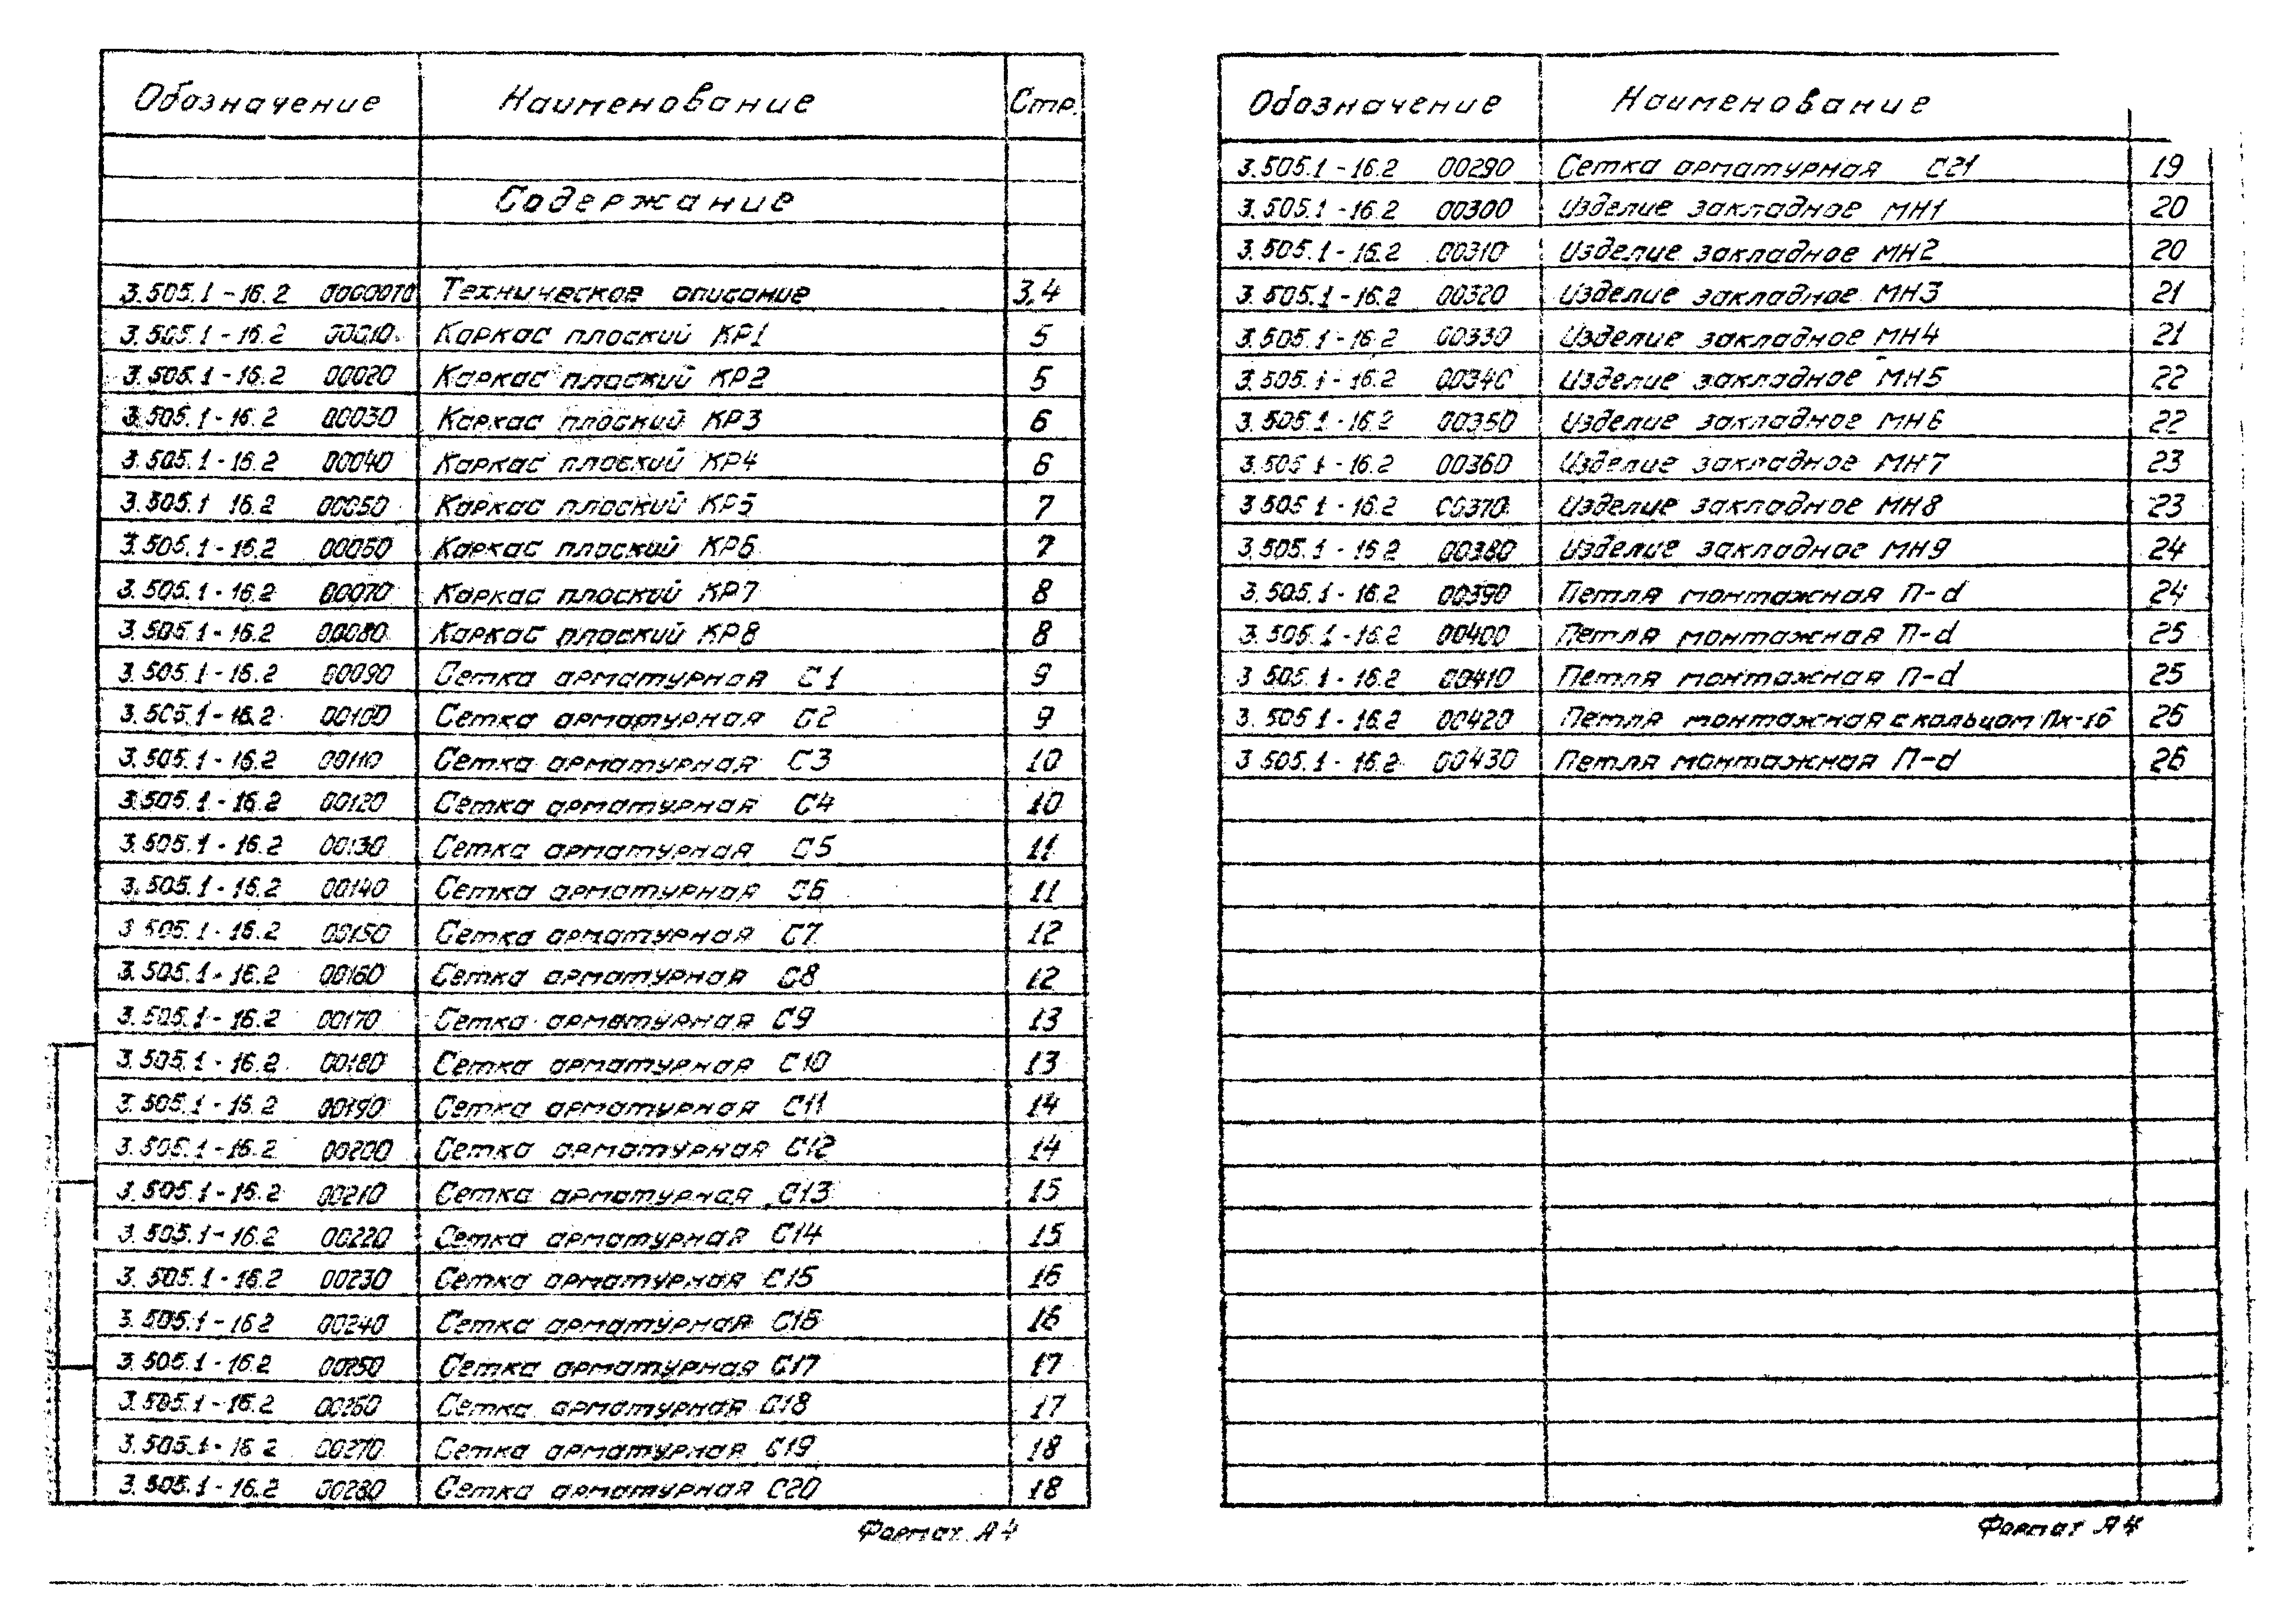 Обозначение Наименование Стр.
Содержание
3.505.1-16.2 00000ТО Техническое описание 3,4
3.505.1-16.2 00010 Каркас плоский КР1 5
3.505.1-16.2 00020 Каркас плоский КР2 5
3.505.1-16.2 00030 Каркас плоский КР3 6
3.505.1-16.2 00040 Каркас плоский КР4 6
3.505.1 16.2 00050 Каркас плоский КР5 7
3.505.1-16.2 00060 Каркас плоский КР6 7
3.505.1-16.2 00070 Каркас плоский КР7 8
3.505.1-16.2 00080 Каркас плоский КР8 8
3.505.1-16.2 00090 Сетка арматурная С1 9
3.505.1-16.2 00100 Сетка арматурная С2 9
3.505.1-16.2 00110 Сетка арматурная С3 10
3.505.1-16.2 00120 Сетка арматурная С4 10
3.505.1-16.2 00130 Сетка арматурная С5 11
3.505.1-16.2 00140 Сетка арматурная С6 11
3.505.1-16.2 00150 Сетка арматурная С7 12
3.505.1-16.2 00160 Сетка арматурная С8 12
3.505.1-16.2 00170 Сетка арматурная С9 13
3.505.1-16.2 00180 Сетка арматурная С10 13
3.505.1-16.2 00190 Сетка арматурная С11 14
3.505.1-16.2 00200 Сетка арматурная С12 14
3.505.1-16.2 00210 Сетка арматурная С13 15
3.505.1-16.2 00220 Сетка арматурная С14 15
3.505.1-16.2 00230 Сетка арматурная С15 16
3.505.1-16.2 00240 Сетка арматурная С16 16
3.505.1-16.2 00250 Сетка арматурная С17 17
3.505.1-16.2 00260 Сетка арматурная С18 17
3.505.1-16.2 00270 Сетка арматурная С19 18
3.505.1-16.2 00280 Сетка арматурная С20 18
Формат А4
Обозначение Наименование
3.505.1-16.2 00290 Сетка арматурная С21 19
3.505.1-16.2 00300 Изделие закладное МН1 20
3.505.1-16.2 00310 Изделие закладное МН2 20
3.505.1-16.2 00320 Изделие закладное МН3 21
3.505.1-16.2 00330 Изделие закладное МН4 21
3.505.1-16.2 00340 Изделие закладное МН5 22
3.505.1-16.2 00350 Изделие закладное МН6 22
3.505.1-16.2 00360 Изделие закладное МН7 23
3.505.1-16.2 00370 Изделие закладное МН8 23
3.505.1-16.2 00380 Изделие закладное МН9 24
3.505.1-16.2 00390 Петля монтажная П-d 24
3.505.1-16.2 00400 Петля монтажная П-d 25
3.505.1-16.2 00410 Петля монтажная П-d 25
3.505.1-16.2 00420 Петля монтажная с кольцом Пк-16 26
3.505.1-16.2 00430 Петля монтажная П-d 26
Формат А4